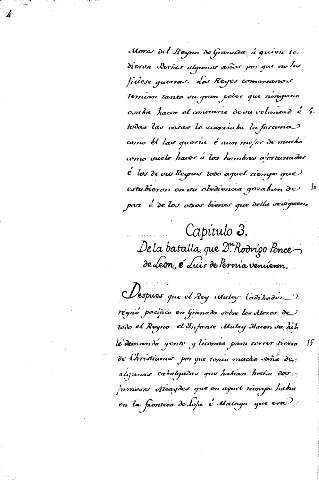 4
Moros del Reyno de Granada, á quien le
dieron Parias algunos años por que no les
ficiese guerras. Los Reyes comarcanos
temian tanto su gran poder que ninguno
osaba hacer el contrario de su voluntad é
todas las cosas le acarreaba la fortuna
como él las queria é aun mejor de mucho
como suele hacer á los hombres afortunados
é los de sus Reynos todo aquel tiempo que
estubieron en su obediencia gozaban de
paz é de los otros bienes que della se siguen.
5
10
Capitulo 3.
De la batalla, que Dn. Rodrigo Ponce
de Leon, é Luis de Pernia vencieron.
Despues que el Rey Muley
reynó pacifico en Granada sobre los Moros de
todo el Reyno el Infante Muley Hacen su hijo
le demandó gente y licencia para correr tierra
de Christianos por que tenia mucha saña de
algunas cabalgadas que habian hecho dos
famosos Alcaydes que en aquel tiempo había
en la frontera de é Malaga que era
15